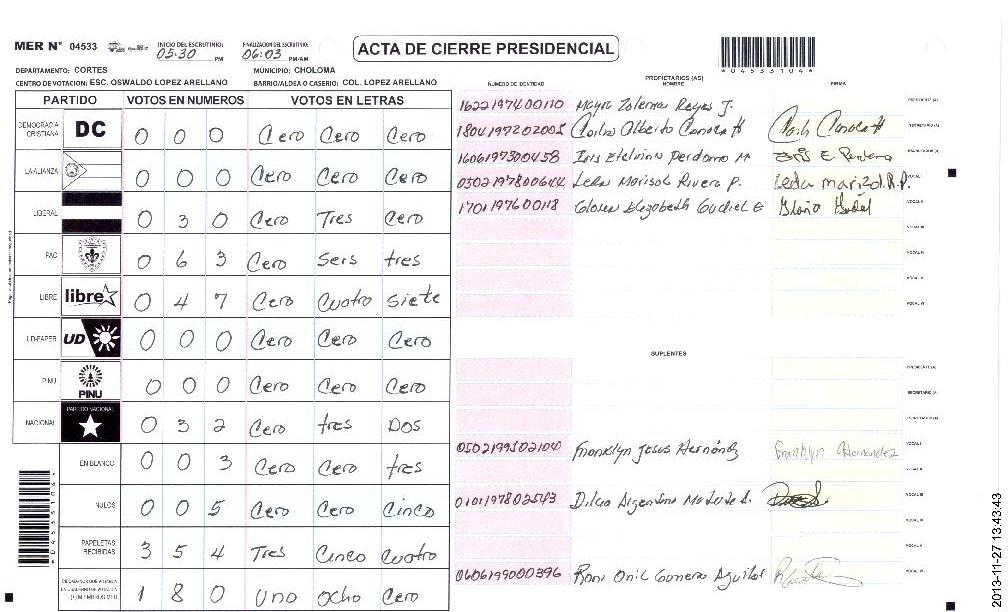 MER N° 04533 INICIO DEL ESCRUTINIO: 05:30 PM FINALIZACION DEL ESCRUTINIO: 06:03 PM/AM ACTA DE CIERRE PRESIDENCIAL *04533104*
DEPARTAMENTO: CORTES MUNICIPIO: CHOLOMA
CENTRO DE VOTACION: ESC. OSWALDO LOPEZ ARELLANO BARRIO/ALDEA O CASERIO: COL. LOPEZ ARELLANO
PARTIDO VOTOS EN NUMEROS VOTOS EN LETRAS
DEMOCRACIA CRISTIANA DC 0 0 0 Cero Cero Cero
LA ALIANZA 0 0 0 Cero Cero Cero
LIBERAL 0 3 0 Cero Tres Cero
PAC 0 6 3 Cero Seis tres
LIBRE libre 0 4 7 Cero Cuatro Siete
UD-FAPER UD 0 0 0 Cero Cero Cero
PINU PINU 0 0 0 Cero Cero Cero
NACIONAL PARTIDO NACIONAL 0 3 2 Cero tres Dos
EN BLANCO 0 0 3 Cero Cero tres
NULOS 0 0 5 Cero Cero Cinco
PAPELETAS RECIBIDAS 3 5 4 Tres Cinco Cuatro
CIUDADANOS QUE VOTARON EN CUADERNO DE VOTACION (+) MIEMBROS MER 1 8 0 Uno Ocho Cero
*04533104*
PROPIETARIOS (AS)
NUMERO DE IDENTIDAD NOMBRE FIRMA
1622197400110 Mayra Reyes J. PRESIDENTE (A)
1804197202005 Carlos Alberto Canaca H Carlos Canaca H SECRETARIO (A)
1606197300458 Iris Etelvina Perdomo M Iris E. Perdomo ESCRUTADOR (A)
0502197800644 Leda Marisol Rivera P. Leda marizol.R.P. VOCAL I
1701197600118 Elizabeth Gudiel E VOCAL II
VOCAL III
VOCAL IV
VOCAL V
VOCAL VI
SUPLENTES
PRESIDENTE (A)
SECRETARIO (A)
ESCRUTADOR (A)
0502199302104 Franklyn Jesus Hernández Franklyn Hernandez VOCAL I
VOCAL II
0101197802543 Dilcia Argentina VOCAL III
VOCAL IV
VOCAL V
0606199000396 Roni Onil Aguilar VOCAL VI
2013-11-27 13:43:43